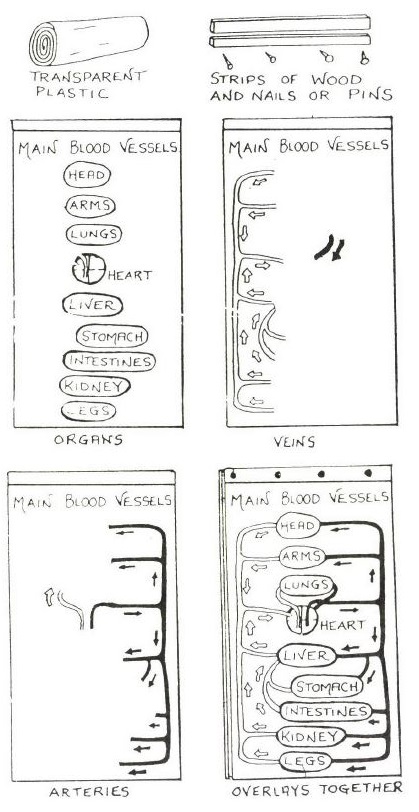 TRANSPARENT
PLASTIC
STRIPS OF WOOD
AND NAILS OR PINS
MAIN BLOOD VESSELS
HEAD
ARMS
LUNGS
HEART
LIVER
STOMACH
INTESTINES
KIDNEY
LEGS
ORGANS
MAIN BLOOD VESSELS
VEINS
MAIN BLOOD VESSELS
ARTERIES
MAIN BLOOD VESSELS
HEAD
ARMS
LUNGS
HEART
LIVER
STOMACH
INTESTINES
KIDNEY
LEGS
OVERLAYS TOGETHER